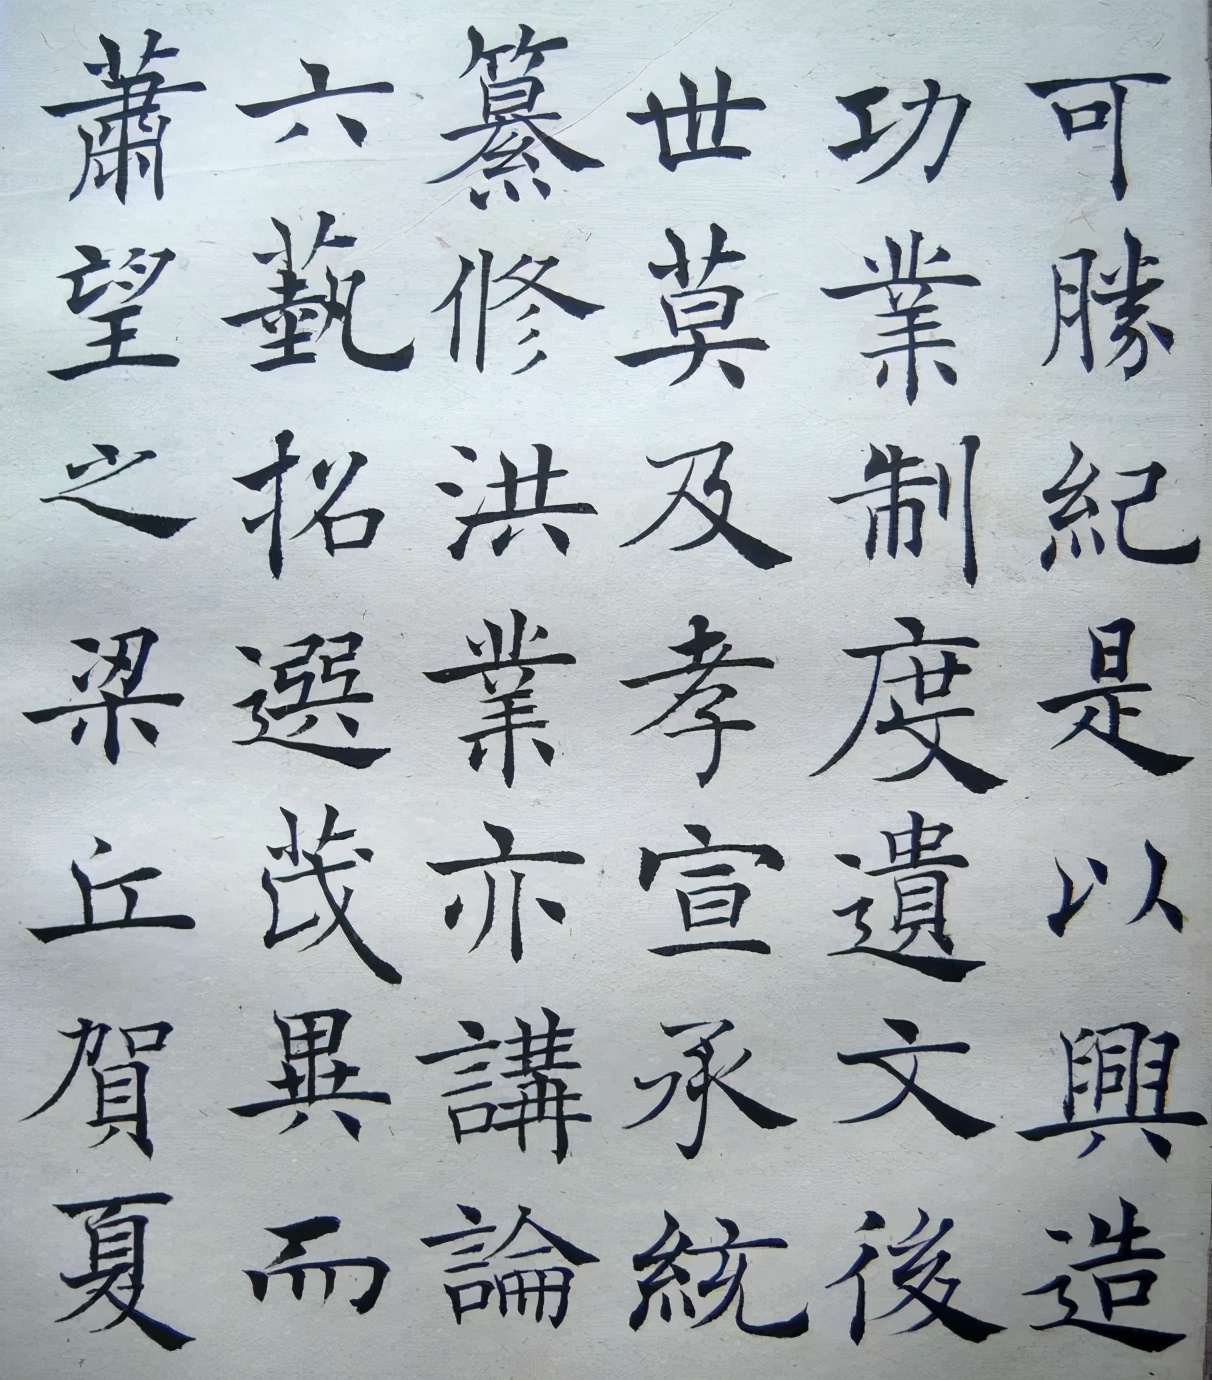 可勝紀是以興造
功業制度遺文後
世莫及孝宣承統
纂修洪業亦講論
六藝招選茂異而
蕭望之梁丘賀夏